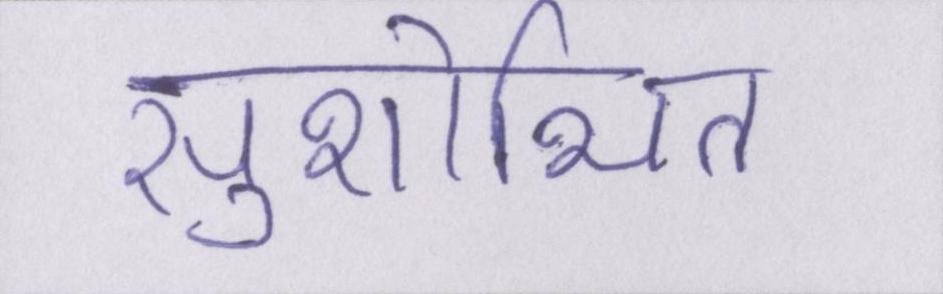 सुशोभित